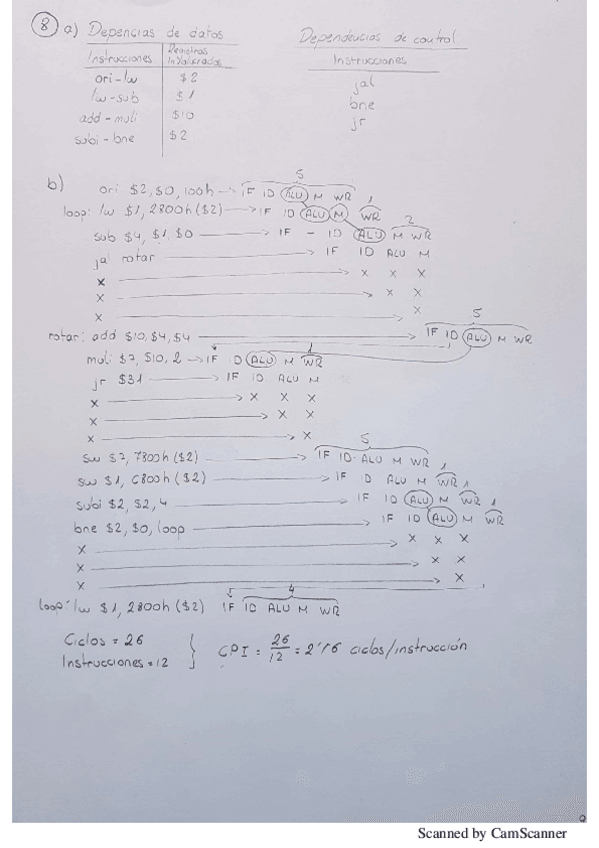 8 a) Depencias de datos Dependencias de control
Instrucciones Registros Involucrados Instrucciones
ori-lw $2 jal
lw-sub $1 bne
add-muli $10 jr
subi-bne $2
b) 5
ori $2,$0,100h IF ID ALU M WR 1
loop: lw $1,2800h($2) IF ID ALU M WR 2
sub $4,$1,$0 IF - ID ALU M WR
jal rotar IF ID ALU M
x x x x
x x x
x x 5
rotar: add $10,$4,$4 IF ID ALU M WR
1
muli $7,$10,2 IF ID ALU M WR
jr $31 IF ID ALU M
x x x x
x x x
x x
5
sw $7,7800h($2) IF ID ALU M WR 1
sw $1,6800h($2) IF D ALU M WR 1
subi $2,$2,4 IF ID ALU M WR 1
bne $2,$0,loop IF ID ALU M WR
x x x x
x x x
x x
4
loop: lw $1,2800h($2) IF ID ALU M WR
Ciclos = 26
Instrucciones = 12 CPI = 26/12 = 2'16 ciclos/instrucción
9
Scanned by CamScanner